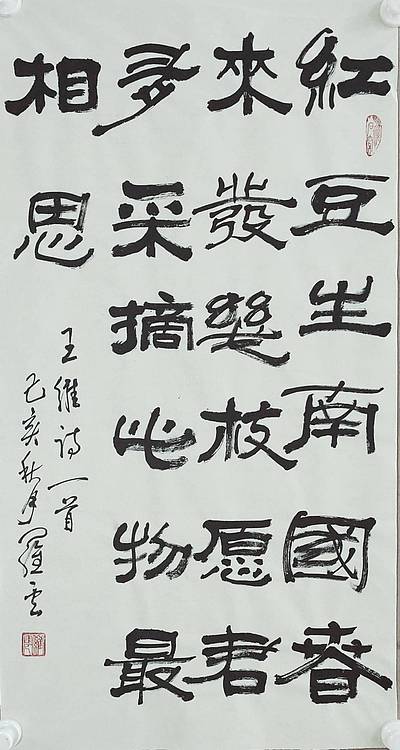 紅豆生南國春
來發幾枝愿君
多采摘此物最
相思
王維詩一首
己亥秋月羅雲